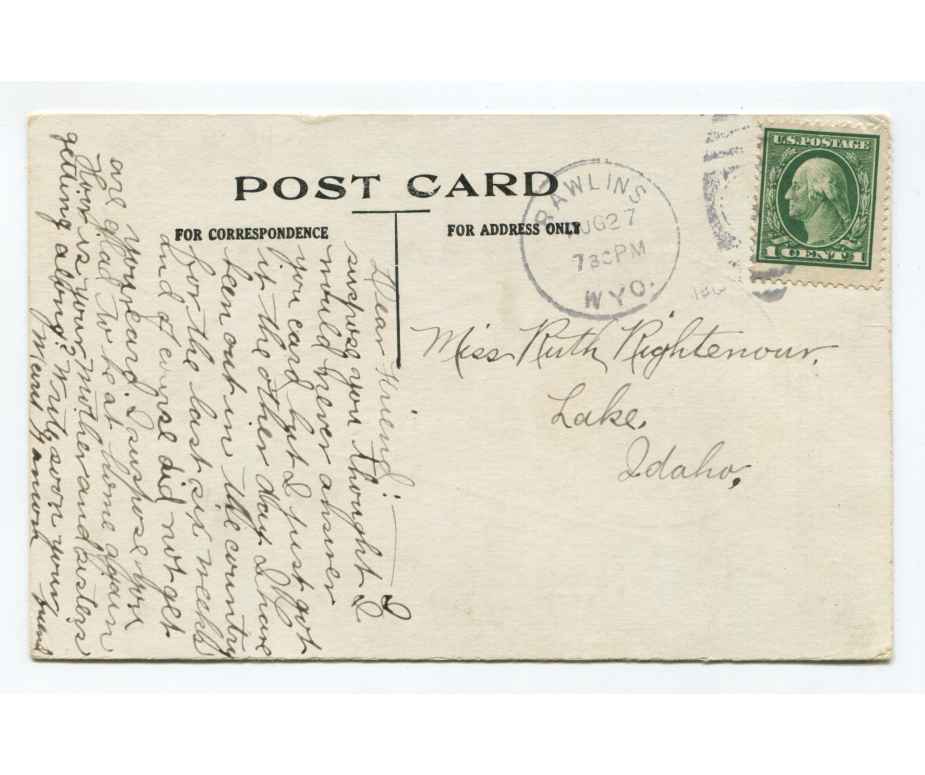 POST CARD
FOR CORRESPONDENCE
FOR ADDRESS ONLY
RAWLINS
AUG 27
730 PM
WYO.
U.S. POSTAGE
1 CENT 1
Miss Ruth Rightenour.
Lake,
Idaho,
Dear Friend:— I
suspose you thought I
would never answer
you card but I just got
it the other day I have
been out in the country
for the last six weeks
and of course did not get
your card. I suppose you
are glad to be at home again
How is your mother and sisters
getting along? Write soon your friend